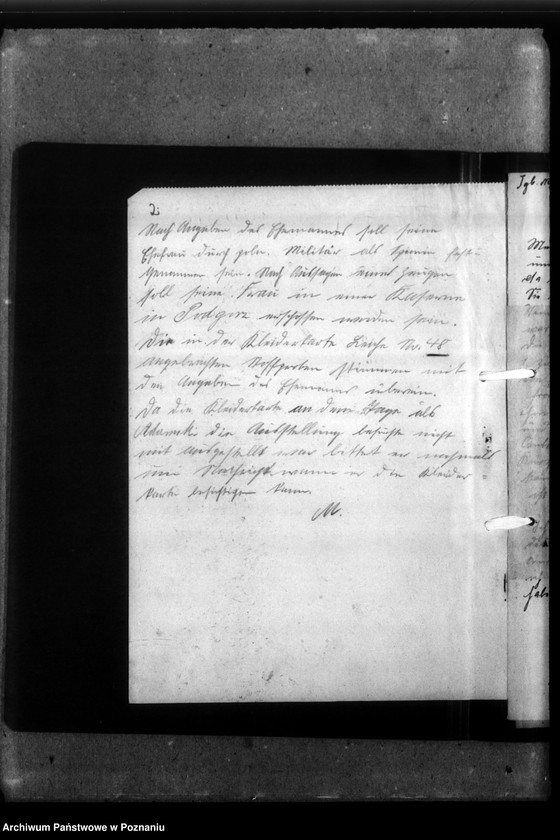 2.
Nach Angaben des Ehemannes soll seine
Ehefrau durch poln. Militär als Spionin fest-
genommen sein. Nach Aussagen eines Zeugen
soll seine Frau in einer Kaserne
in Podgorz erschossen worden sein.
Die in der Kleiderkarte Leiche Nr. 48
angebrachten Stoffproben stimmen mit
den Angaben des Ehemannes überein.
Da die Kleiderkarte an dem Tage als
Adamski die Ausstellung besuchte nicht
mit ausgestellt war bittet er nochmals
um Nachricht wann er die Kleider-
karte besichtigen kann.
M.
Tgb. 
Archiwum Państwowe w Poznaniu